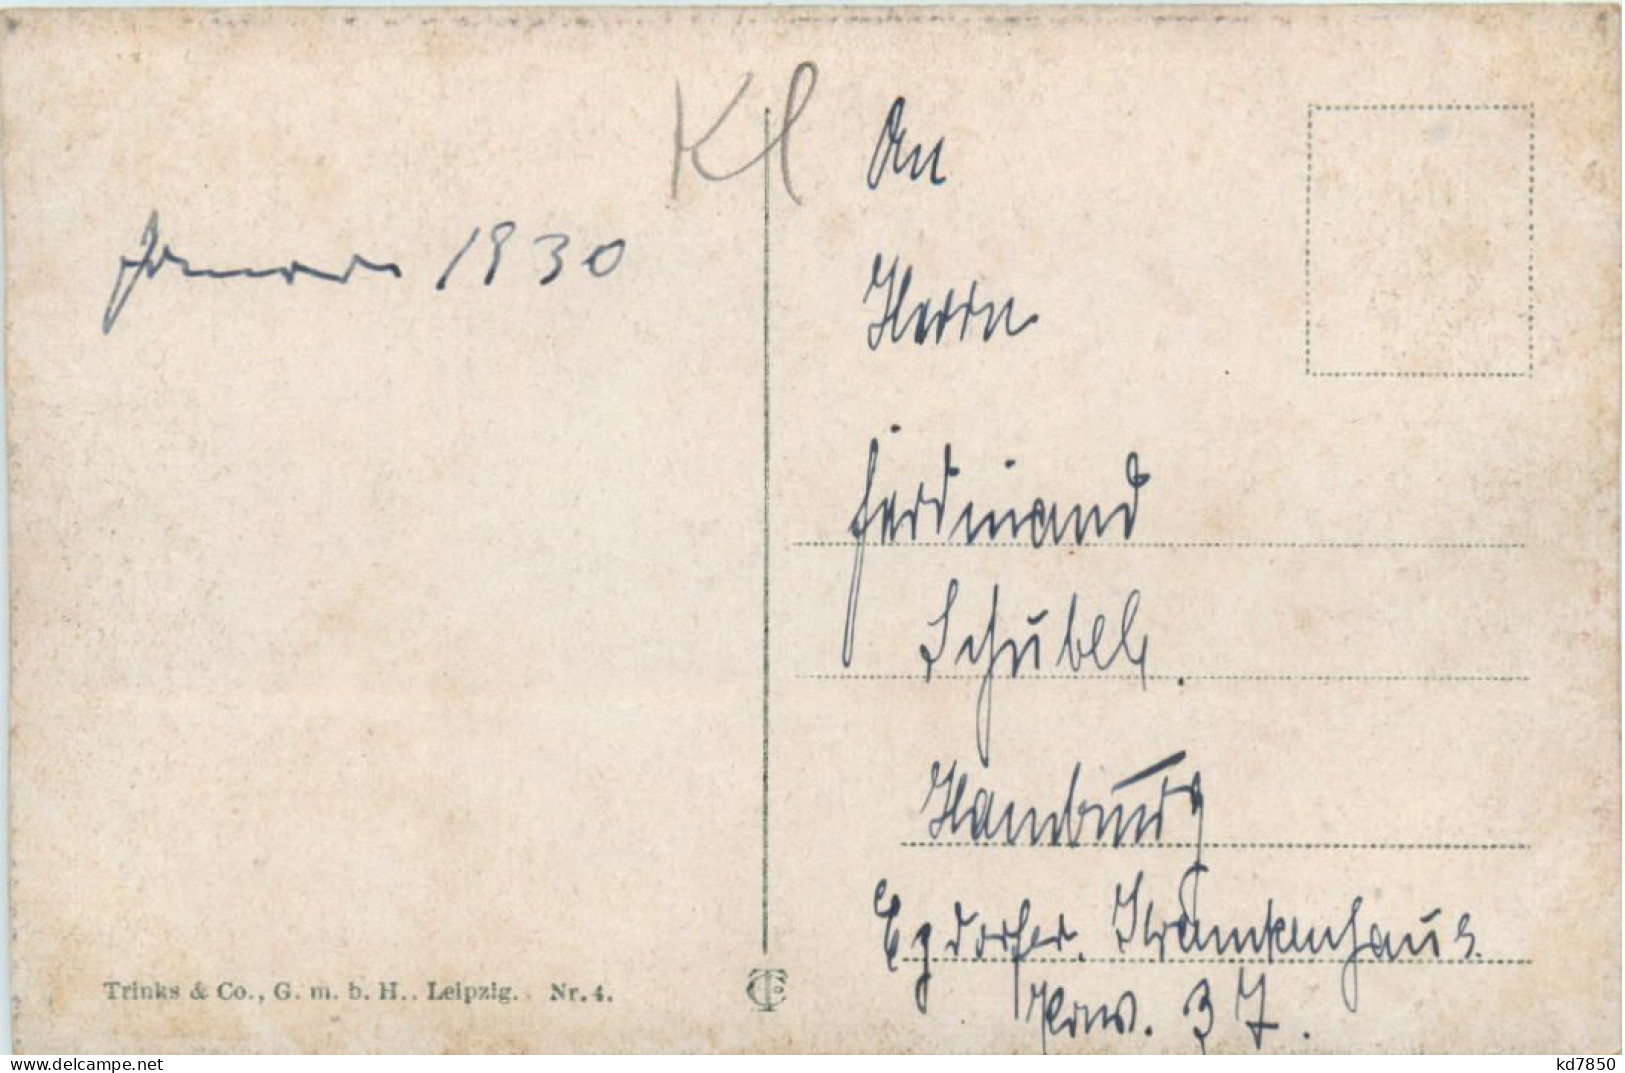 Kl
Januar 1930
An
Herrn
Ferdinand
Schübel.
Hamburg
Krankenhaus.
37.
Trinks & Co., G. m. b. H., Leipzig. Nr. 4.
www.delcampe.net
kd7850